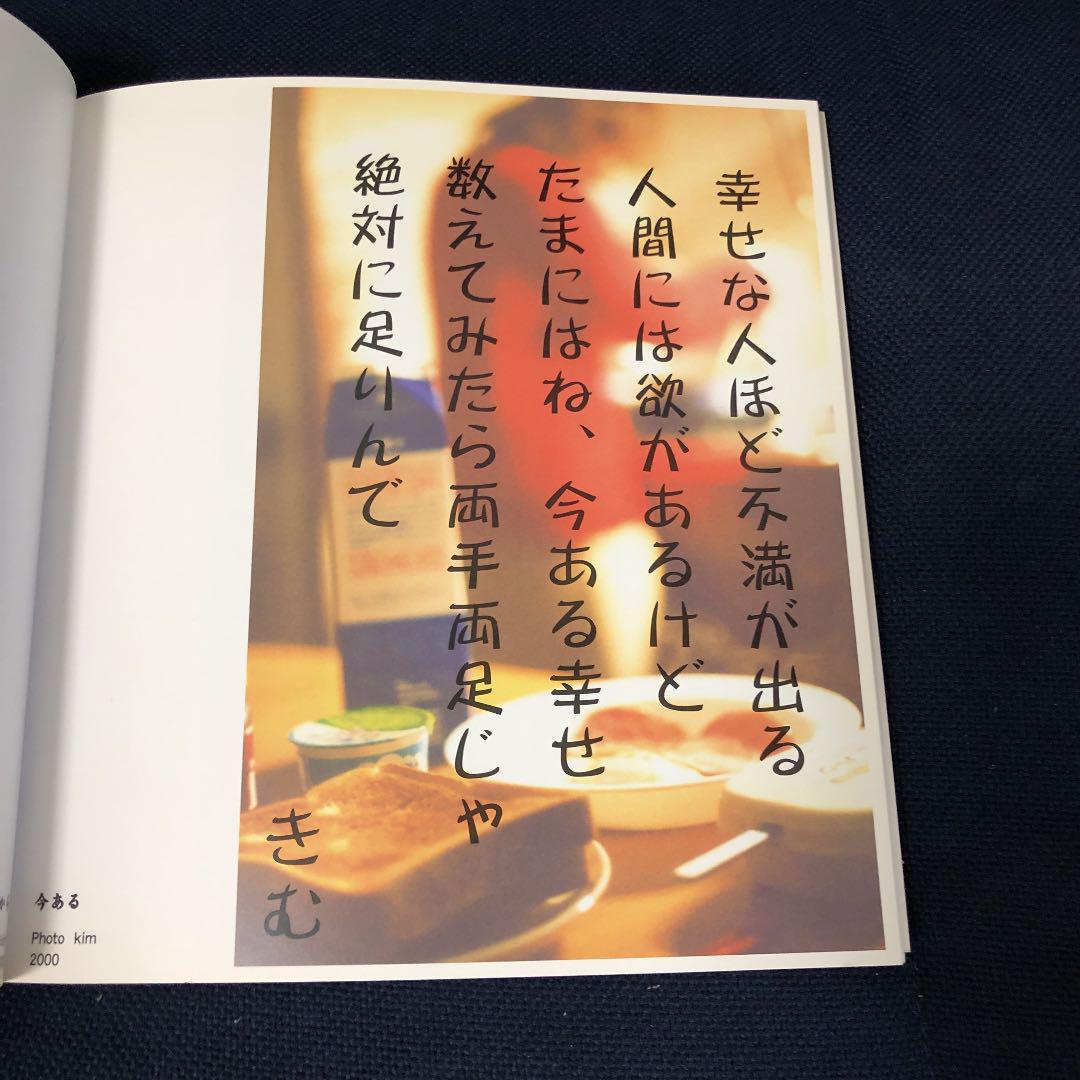 幸せな人ほど不満が出る
人間には欲があるけど
たまにはね、今ある幸せ
数えてみたら両手両足じゃ
絶対に足りんで
きむ
今ある
Photo kim
2000